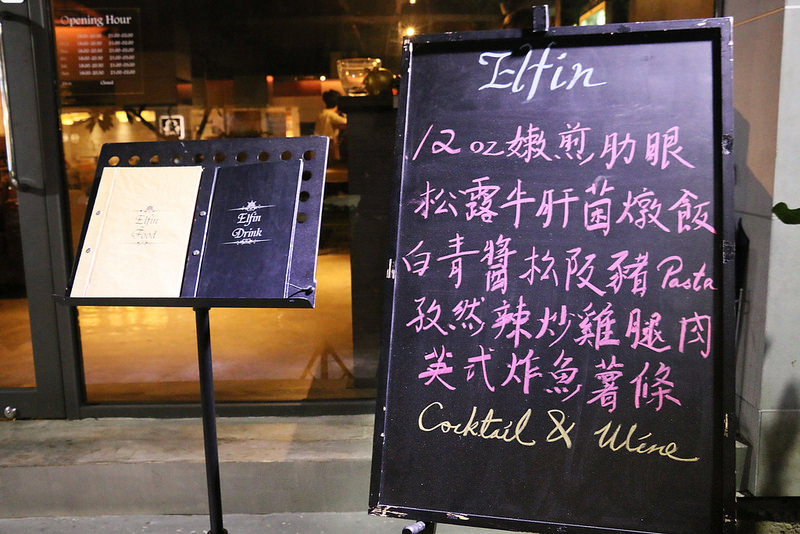 Opening Hour
Elfin
Food
Elfin
Drink
Elfin
12 oz嫩煎肋眼
松露牛肝菌燉飯
白青醬松阪豬Pasta
孜然辣炒雞腿肉
英式炸魚薯條
Cocktail & Wine